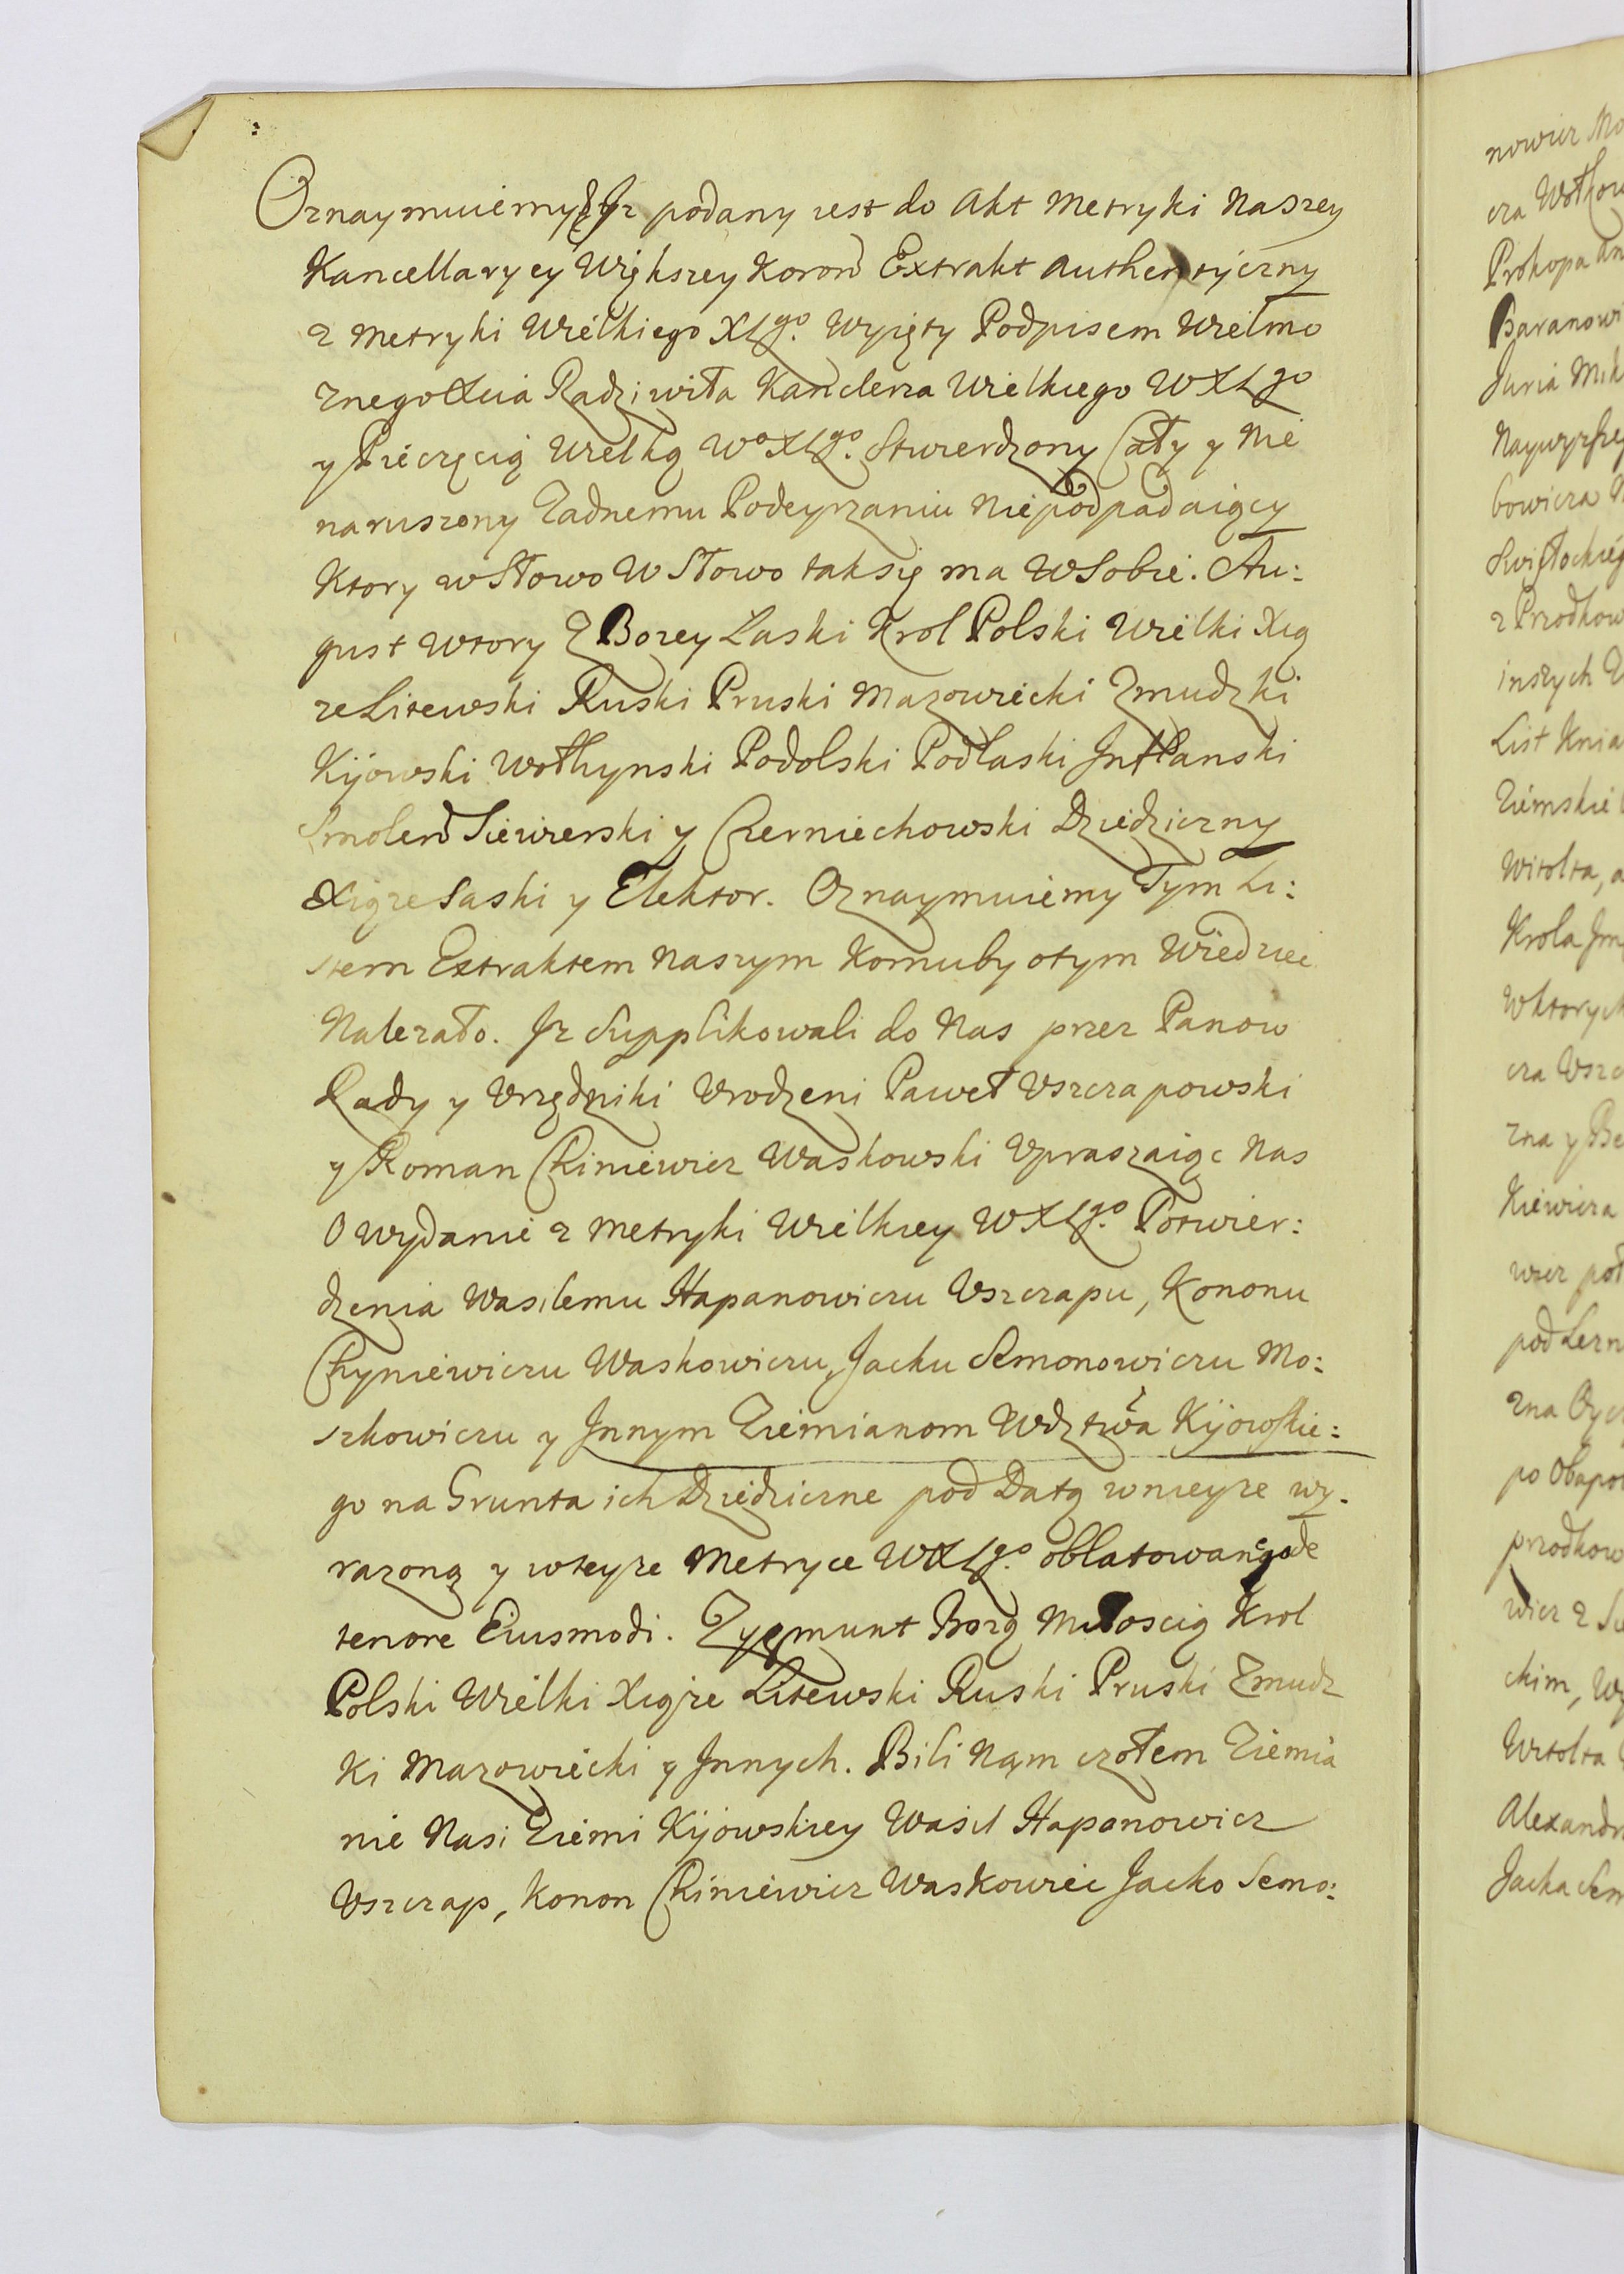 Oznaymuiemy Jż podany iest do Akt Metryki Naszey
Kancellaryey Większey Koron Extrakt Authentyczny
z Metryki Wielkiego XLgo. Wyięty Podpisem Wielmo
żnego Xcia Radziwiła Kanclerza Wielkiego WXLgo
y Pieczęcią Wielką Wo XLgo. Stwierdzony Cały y Nie
naruszony Żadnemu Podeyrzaniu Niepodpadaiący
Ktory w Słowo W Słowo tak się ma W Sobie. Au:
gust Wtory Z Bożey Łaski Krol Polski Wielki Xią
że Litewski Ruski Pruski Mazowiecki Zmudzki
Kijowski Wołhynski Podolski Podlaski Jnflanski
Smolen Siewierski y Czerniechowski Dziedziczny
Xiąże Saski y Elektor. Oznaymuiemy Tym Li:
stem Extraktem Naszym Komuby otym Wiedziec
Należało. Jż Supplikowali do Nas przez Panow
Rady y Urzędniki Urodzeni Paweł Uszczapowski
y Roman Chiniewicz Waskowski Upraszaiąc Nas
O Wydanie z Metryki Wielkiey WXLgo. Potwier:
dzenia Wasilemu Hapanowiczu Uszczapu, Kononu
Chyniewiczu Waskowiczu, Jacku Semonowiczu Mo:
szkowiczu y Jnnym Ziemianom Wdztwa Kijowskie:
go na Grunta ich Dziedziczne pod Datą wnieyże wy.
rażoną y wteyże Metryce WXLgo. oblatowaną de
tenore Eiusmodi. Zygmunt Bożą Miłoscią Krol
Polski Wielki Xiąże Litewski Ruski Pruski Zmudz
Ki Mazowiecki y Jnnych. Bili Nąm czołem Ziemia
nie Nasi Ziemi Kijowskiey Wasil Hapanowicz
Uszczap, Konon Chiniewicz Waskowiec Jacko Semo: